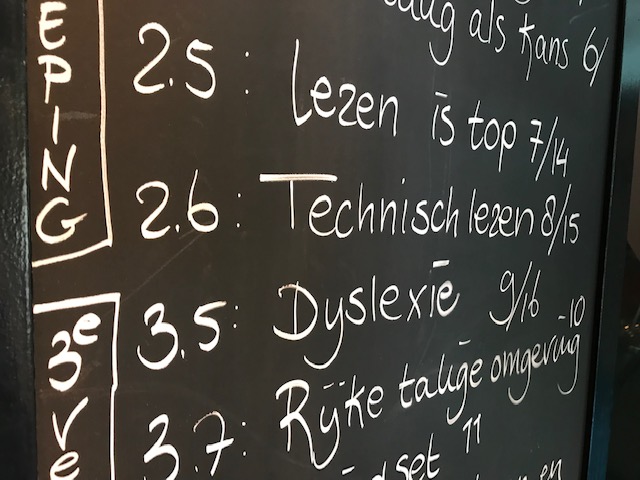 EPING
als kans 6/
2.5: Lezen is top 7/14
2.6: Technisch lezen 8/15
3e ve
3.5: Dyslexie 9/16
3.7: Rijke talige omgeving -10
set 11